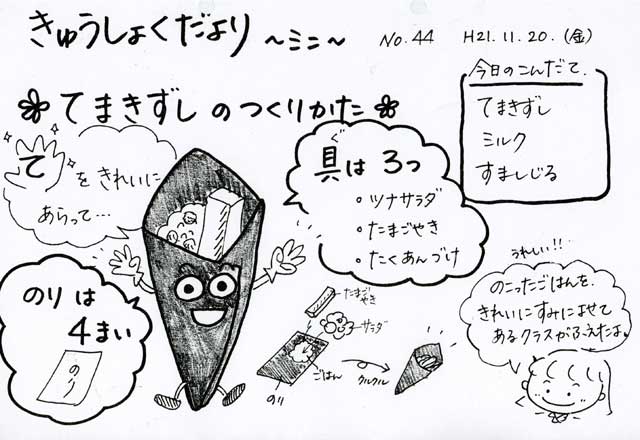 きゅうしょくだより ～ミニ～ No.44 H21.11.20.(金)
今日のこんだて.
てまきずし
ミルク
すましじる
てまきずしのつくりかた
て をきれいに
あらって…
ぐ
具は 3つ
・ツナサラダ
・たまごやき
・たくあんづけ
のりは
4まい
のり
たまごやき
サラダ
ごはん
のり
クルクル
うれしい!!
のこったごはんを、
きれいにすみによせて
あるクラスがふえたよ。